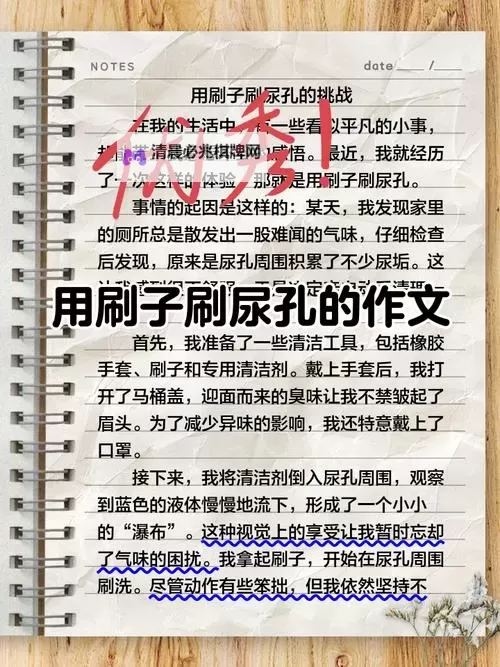 NOTES
date ___ / ___
用刷子刷尿孔的挑战
在我的生活中，有一些看似平凡的小事，
清晨必兆棋牌网
感悟。最近，我就经历
了一次这样的体验，那就是用刷子刷尿孔。
优秀！
事情的起因是这样的：某天，我发现家里
的厕所总是散发出一股难闻的气味，仔细检查
后发现，原来是尿孔周围积累了不少尿垢。这
用刷子刷尿孔的作文
首先，我准备了一些清洁工具，包括橡胶
手套、刷子和专用清洁剂。戴上手套后，我打
开了马桶盖，迎面而来的臭味让我不禁皱起了
眉头。为了减少异味的影响，我还特意戴上了
口罩。
接下来，我将清洁剂倒入尿孔周围，观察
到蓝色的液体慢慢地流下，形成了一个小小
的“瀑布”。这种视觉上的享受让我暂时忘却
了气味的困扰。我拿起刷子，开始在尿孔周围
刷洗。尽管动作有些笨拙，但我依然坚持不